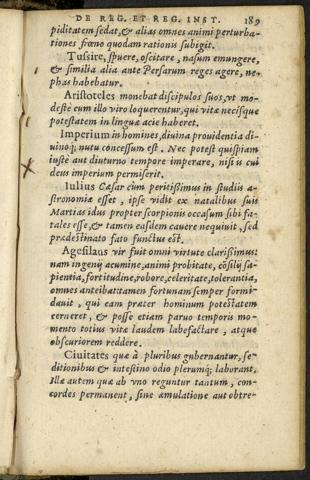 DE REG. ET REG. INST. 189
piditatem sedat, & alias omnes animi perturba-
tiones frœno quodam rationis subigit.
Tussire, spuere, oscitare, nasum emungere,
& similia alia ante Persarum reges agere, ne-
phas habebatur.
Aristoteles monebat discipulos suos, vt mo-
destè cum illo viro loquerentur, qui vitæ necisque
potestatem in linguæ acie haberet.
Imperium in homines, diuina prouidentia di-
uinoq; nutu concessum est. Nec potest quispiam
iustè aut diuturno tempore imperare, nisi is cui
deus imperium permiserit.
Iulius Cæsar cùm peritissimus in studiis a-
stronomiæ esset, ipse vidit ex natalibus suis
Martias idus propter scorpionis occasum sibi fa-
tales esse, & tamen easdem cauere nequiuit, sed
prædestinato fato functus est.
Agesilaus vir fuit omni virtute clarissimus:
nam ingenij acumine, animi probitate, cõsilij sa-
pientia, fortitudine, robore, celeritate, tolerantia,
omnes anteibat: tamen fortunam semper formi-
dauit, qui eam præter hominum potestatem
cerneret, & posse etiam paruo temporis mo-
mento totius vitæ laudem labefactare, atque
obscuriorem reddere.
Ciuitates quæ à pluribus gubernantur, se-
ditionibus & intestino odio plerumq; laborant.
Illæ autem quæ ab vno reguntur tantum, con-
cordes permanent, sine æmulatione aut obtre-